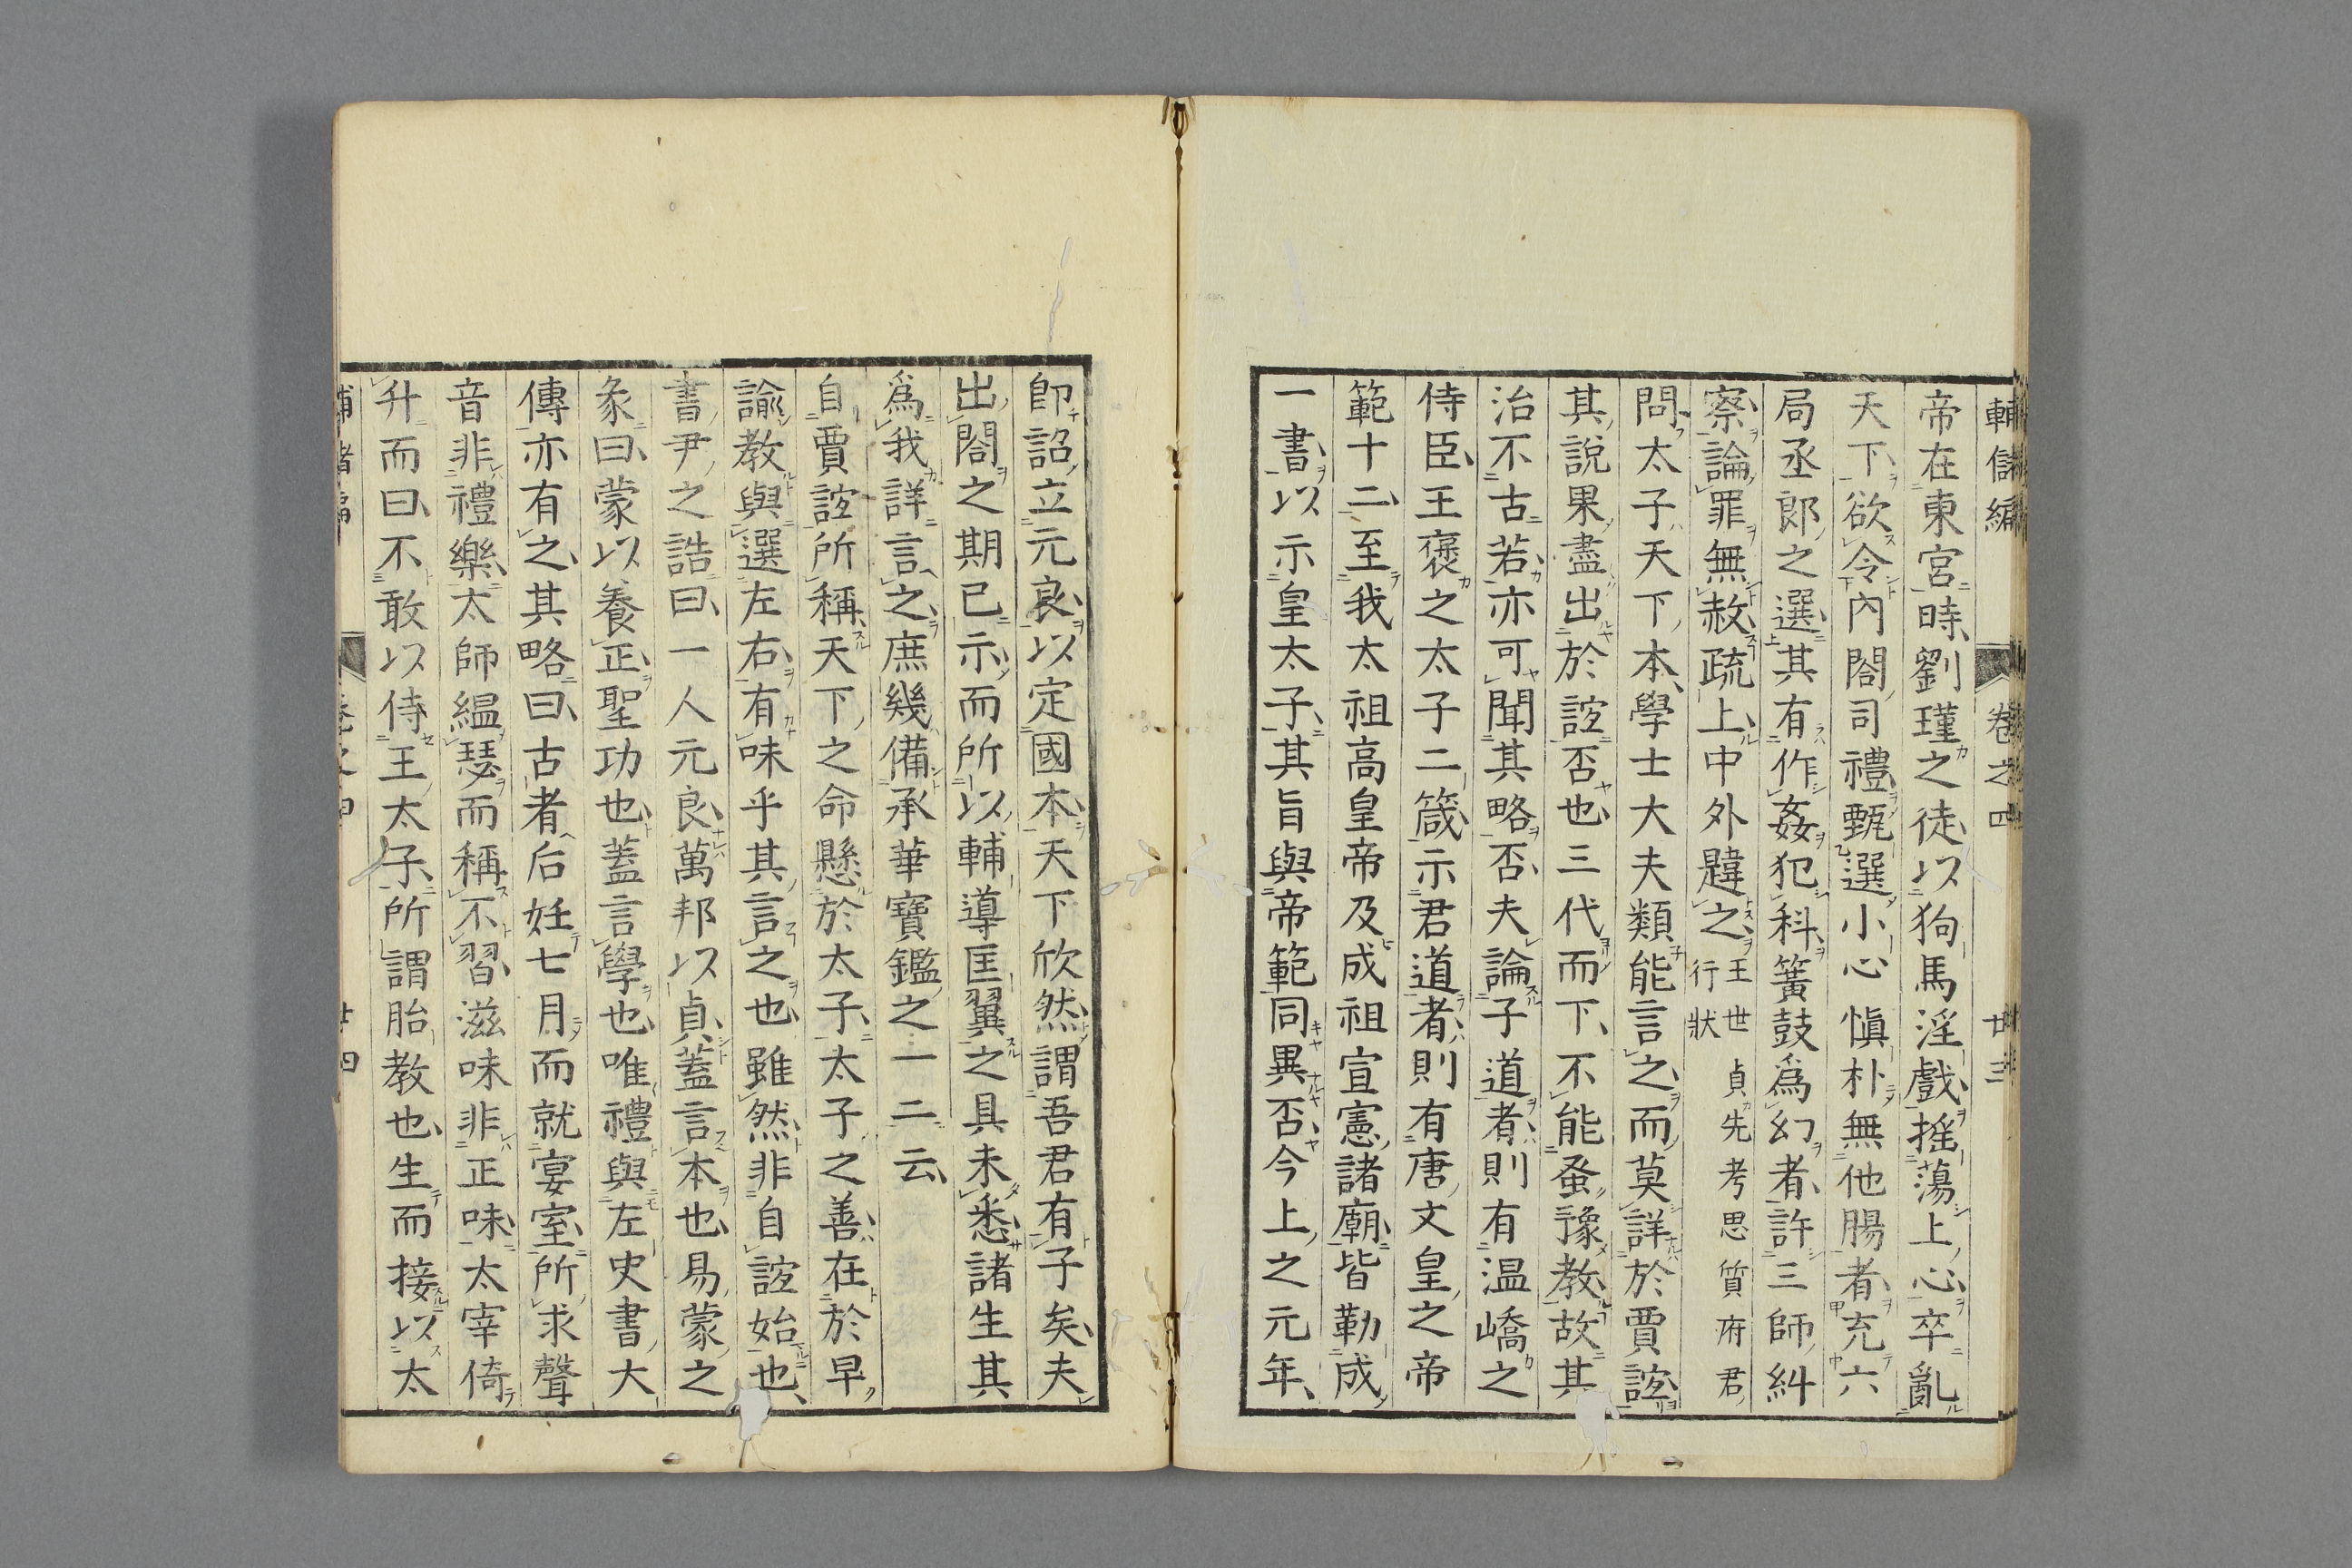 輔儲編 卷之四 廿三
帝在東宮時劉瑾之徒以狗馬淫戲搖蕩上心卒亂
天下欲令內閣司禮甄選小心愼朴無他腸者充六
局丞郎之選其有作姦犯科簧鼓爲幻者許三師糾
察論罪無赦疏上中外韙之王世貞先考思質府君行狀
問太子天下本學士大夫類能言之而莫詳於賈誼
其說果盡出於誼否也三代而下不能蚤豫教故其
治不古若亦可聞其略否夫論子道者則有温嶠之
侍臣王褒之太子二箴示君道者則有唐文皇之帝
範十二至我太祖高皇帝及成祖宣憲諸廟皆勒成
一書以示皇太子其旨與帝範同異否今上之元年
卽詔立元良以定國本天下欣然謂吾君有子矣夫
出閣之期已示而所以輔導匡翼之具未悉諸生其
爲我詳言之庶幾備承華寶鑑之一二云
自賈誼所稱天下之命懸於太子太子之善在於早
諭教與選左右有味乎其言之也雖然非自誼始也
書尹之誥曰一人元良萬邦以貞蓋言本也易蒙之
彖曰蒙以養正聖功也蓋言學也唯禮與左史書大
傳亦有之其略曰古者后妊七月而就宴室所求聲
音非禮樂太師緼瑟而稱不習滋味非正味太宰倚
升而曰不敢以侍王太子所謂胎教也生而接以太
卷之四 廿四